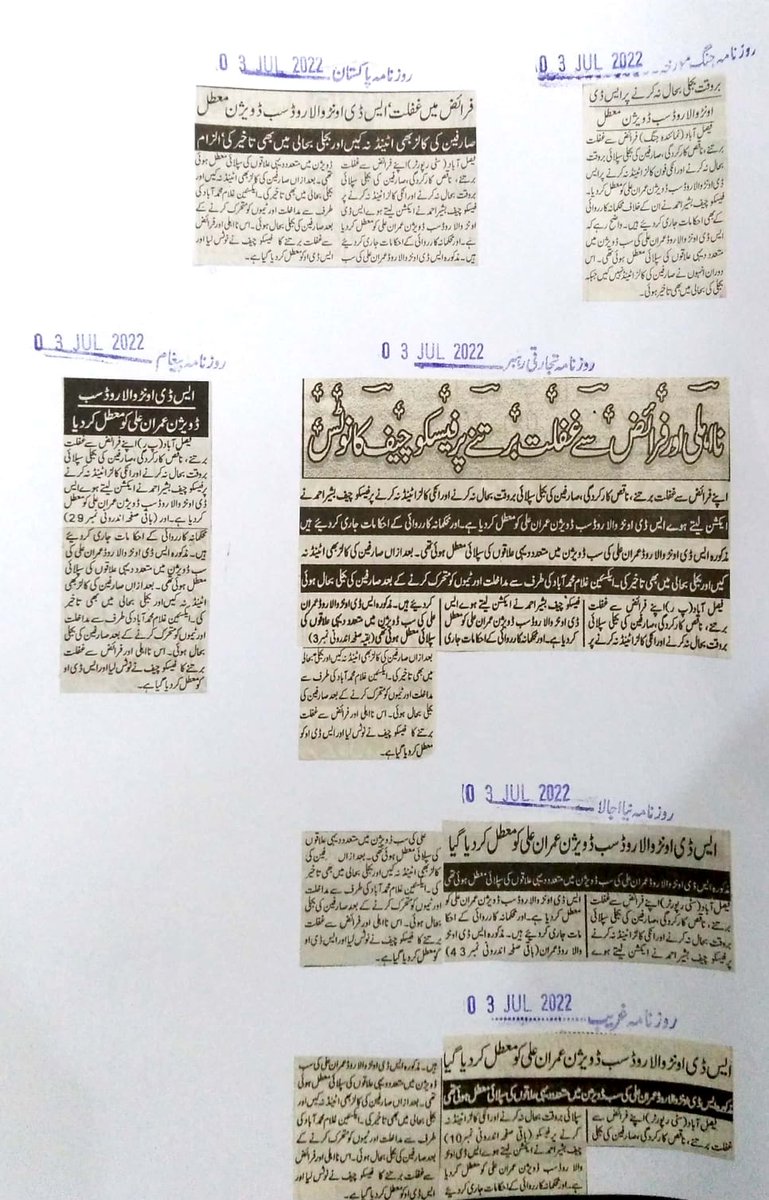 روزنامہ جنگ مورخہ 0 3 JUL 2022
بروقت بجلی بحال نہ کرنے پر ایس ڈی
او نڑوالا روڈ سب ڈویژن معطل
فیصل آباد (نمائندہ جنگ) فرائض سے غفلت
برتنے، ناقص کارکردگی، صارفین کی بجلی سپلائی بروقت
بحال نہ کرنے اور انکی فون کالز اٹینڈ نہ کرنے پر ایس
ڈی او نڑوالا روڈ سب ڈویژن عمران علی کو معطل کر دیا۔
فیسکو چیف بشیر احمد نے ان کے خلاف محکمانہ کارروائی
کے بھی احکامات جاری کر دیئے ہیں۔ واضح رہے کہ
ایس ڈی او نڑوالا روڈ عمران علی کی سب ڈویژن میں
متعدد دیہی علاقوں کی سپلائی معطل ہوئی تھی۔ اس
دوران انہوں نے صارفین کی کالز اٹینڈ نہیں کیں جبکہ
بجلی کی بحالی میں بھی تاخیر ہوئی۔
روزنامہ پاکستان 0 3 JUL 2022
فرائض میں غفلت‘ ایس ڈی او نڑوالا روڈ سب ڈویژن معطل
صارفین کی کالز بھی اٹینڈ نہ کیں اور بجلی بحالی میں بھی تاخیر کی‘ الزام
فیصل آباد (سٹی رپورٹر) اپنے فرائض سے غفلت
برتنے، ناقص کارکردگی، صارفین کی بجلی سپلائی بروقت
بحال نہ کرنے اور انکی کالز اٹینڈ نہ کرنے پر
فیسکو چیف بشیر احمد نے ایکشن لیتے ہوے ایس ڈی
او نڑوالا روڈ سب ڈویژن عمران علی کو معطل کر دیا
ہے۔ اور محکمانہ کارروائی کے احکامات جاری کر دیئے
ہیں۔ مذکورہ ایس ڈی او نڑوالا روڈ عمران علی کی سب
ڈویژن میں متعدد دیہی علاقوں کی سپلائی معطل ہوئی
تھی۔ بعد ازاں صارفین کی کالز بھی اٹینڈ نہ کیں اور
بجلی بحالی میں بھی تاخیر کی۔ ایکسین غلام محمد آباد کی
طرف سے مداخلت اور ٹیموں کو متحرک کرنے کے
بعد صارفین کی بجلی بحال ہوئی۔ اس نااہلی اور فرائض
سے غفلت برتنے کا فیسکو چیف نے نوٹس لیا اور
ایس ڈی او کو معطل کر دیا گیا ہے۔
روزنامہ تجارتی رہبر 0 3 JUL 2022
نااہلی اور فرائض سے غفلت برتنے پر فیسکو چیف کا نوٹس
اپنے فرائض سے غفلت برتنے، ناقص کارکردگی، صارفین کی بجلی سپلائی بروقت بحال نہ کرنے اور انکی کالز اٹینڈ نہ کرنے پر فیسکو چیف بشیر احمد نے
ایکشن لیتے ہوے ایس ڈی او نڑوالا روڈ سب ڈویژن عمران علی کو معطل کر دیا ہے۔ اور محکمانہ کارروائی کے احکامات جاری کر دیئے ہیں
مذکورہ ایس ڈی او نڑوالا روڈ عمران علی کی سب ڈویژن میں متعدد دیہی علاقوں کی سپلائی معطل ہوئی تھی۔ بعد ازاں صارفین کی کالز بھی اٹینڈ نہ
کیں اور بجلی بحالی میں بھی تاخیر کی۔ ایکسین غلام محمد آباد کی طرف سے مداخلت اور ٹیموں کو متحرک کرنے کے بعد صارفین کی بجلی بحال ہوئی
فیصل آباد (پ ر) اپنے فرائض سے غفلت
برتنے، ناقص کارکردگی، صارفین کی بجلی سپلائی
بروقت بحال نہ کرنے اور انکی کالز اٹینڈ نہ کرنے پر
فیسکو چیف بشیر احمد نے ایکشن لیتے ہوے ایس
ڈی او نڑوالا روڈ سب ڈویژن عمران علی کو معطل
کر دیا ہے۔ اور محکمانہ کارروائی کے احکامات جاری
کر دیئے ہیں۔ مذکورہ ایس ڈی او نڑوالا روڈ عمران
علی کی سب ڈویژن میں متعدد دیہی علاقوں کی
سپلائی معطل ہوئی تھی (بقیہ صفحہ اندرونی نمبر 3)
بعد ازاں صارفین کی کالز بھی اٹینڈ نہ کیں اور بجلی بحالی
میں بھی تاخیر کی۔ ایکسین غلام محمد آباد کی طرف سے
مداخلت اور ٹیموں کو متحرک کرنے کے بعد صارفین کی
بجلی بحال ہوئی۔ اس نااہلی اور فرائض سے غفلت
برتنے کا فیسکو چیف نے نوٹس لیا اور ایس ڈی او کو
معطل کر دیا گیا ہے۔
روزنامہ پیغام 0 3 JUL 2022
ایس ڈی او نڑوالا روڈ سب
ڈویژن عمران علی کو معطل کر دیا
فیصل آباد (پ ر) اپنے فرائض سے غفلت
برتنے، ناقص کارکردگی، صارفین کی بجلی سپلائی
بروقت بحال نہ کرنے اور انکی کالز اٹینڈ نہ کرنے
پر فیسکو چیف بشیر احمد نے ایکشن لیتے ہوے ایس
ڈی او نڑوالا روڈ سب ڈویژن عمران علی کو معطل
کر دیا ہے۔ اور (باقی صفحہ اندرونی نمبر 29)
محکمانہ کارروائی کے احکامات جاری کر دیئے
ہیں۔ مذکورہ ایس ڈی او نڑوالا روڈ عمران علی کی
سب ڈویژن میں متعدد دیہی علاقوں کی سپلائی
معطل ہوئی تھی۔ بعد ازاں صارفین کی کالز بھی
اٹینڈ نہ کیں اور بجلی بحالی میں بھی تاخیر
کی۔ ایکسین غلام محمد آباد کی طرف سے
مداخلت اور ٹیموں کو متحرک کرنے کے بعد صارفین
کی بجلی بحال ہوئی۔ اس نااہلی اور فرائض سے غفلت
برتنے کا فیسکو چیف نے نوٹس لیا اور ایس ڈی او
کو معطل کر دیا گیا ہے۔
روزنامہ نیا اجالا 0 3 JUL 2022
ایس ڈی او نڑوالا روڈ سب ڈویژن عمران علی کو معطل کر دیا گیا
مذکورہ ایس ڈی او نڑوالا روڈ عمران علی کی سب ڈویژن میں متعدد دیہی علاقوں کی سپلائی معطل ہوئی تھی
فیصل آباد (سٹی رپورٹر) اپنے فرائض سے غفلت
برتنے، ناقص کارکردگی، صارفین کی بجلی سپلائی
بروقت بحال نہ کرنے اور انکی کالز اٹینڈ نہ کرنے
پر فیسکو چیف بشیر احمد نے ایکشن لیتے ہوے
ایس ڈی او نڑوالا روڈ سب ڈویژن عمران علی کو
معطل کر دیا ہے۔ اور محکمانہ کارروائی کے احکا
مات جاری کر دیئے ہیں۔ مذکورہ ایس ڈی او نڑ
والا روڈ عمران (باقی صفحہ اندرونی نمبر 43)
علی کی سب ڈویژن میں متعدد دیہی علاقوں
کی سپلائی معطل ہوئی تھی۔ بعد ازاں صارفین کی
کالز بھی اٹینڈ نہ کیں اور بجلی بحالی میں بھی تاخیر
کی۔ ایکسین غلام محمد آباد کی طرف سے مداخلت
اور ٹیموں کو متحرک کرنے کے بعد صارفین کی بجلی
بحال ہوئی۔ اس نااہلی اور فرائض سے غفلت
برتنے کا فیسکو چیف نے نوٹس لیا اور ایس ڈی او
کو معطل کر دیا گیا ہے۔
روزنامہ غریب 0 3 JUL 2022
ایس ڈی او نڑوالا روڈ سب ڈویژن عمران علی کو معطل کر دیا گیا
مذکورہ ایس ڈی او نڑوالا روڈ عمران علی کی سب ڈویژن میں متعدد دیہی علاقوں کی سپلائی معطل ہوئی تھی
فیصل آباد (سٹی رپورٹر) اپنے فرائض سے
غفلت برتنے، ناقص کارکردگی، صارفین کی بجلی
سپلائی بروقت بحال نہ کرنے اور انکی کالز اٹینڈ نہ
کرنے پر فیسکو (باقی صفحہ اندرونی نمبر 10)
چیف بشیر احمد نے ایکشن لیتے ہوے ایس ڈی او
نڑوالا روڈ سب ڈویژن عمران علی کو معطل کر دیا
ہے۔ اور محکمانہ کارروائی کے احکامات جاری کر دیئے
ہیں۔ مذکورہ ایس ڈی او نڑوالا روڈ عمران علی کی سب
ڈویژن میں متعدد دیہی علاقوں کی سپلائی معطل ہوئی
تھی۔ بعد ازاں صارفین کی کالز بھی اٹینڈ نہ کیں اور
بجلی بحالی میں بھی تاخیر کی۔ ایکسین غلام محمد آباد کی
طرف سے مداخلت اور ٹیموں کو متحرک کرنے کے
بعد صارفین کی بجلی بحال ہوئی۔ اس نااہلی اور
فرائض سے غفلت برتنے کا فیسکو چیف نے نوٹس
لیا اور ایس ڈی او کو معطل کر دیا گیا ہے۔